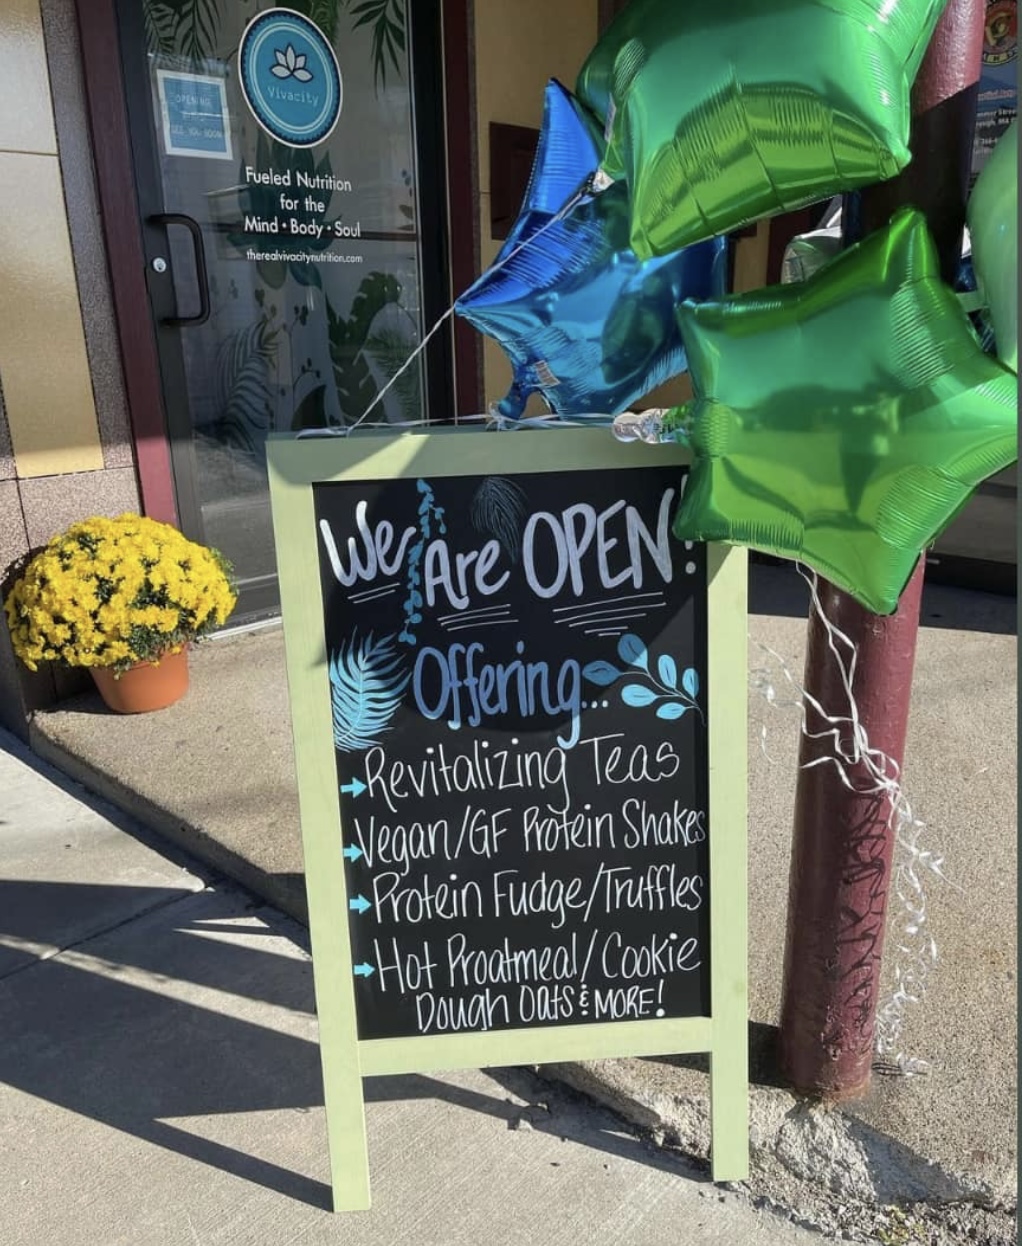 Vivacity
OPENING
SEE YOU SOON
Fueled Nutrition
for the
Mind • Body • Soul
therealvivacitynutrition.com
We Are OPEN!
Offering...
Revitalizing Teas
Vegan/GF Protein Shakes
Protein Fudge/Truffles
Hot Proatmeal/Cookie
Dough Oats & MORE!